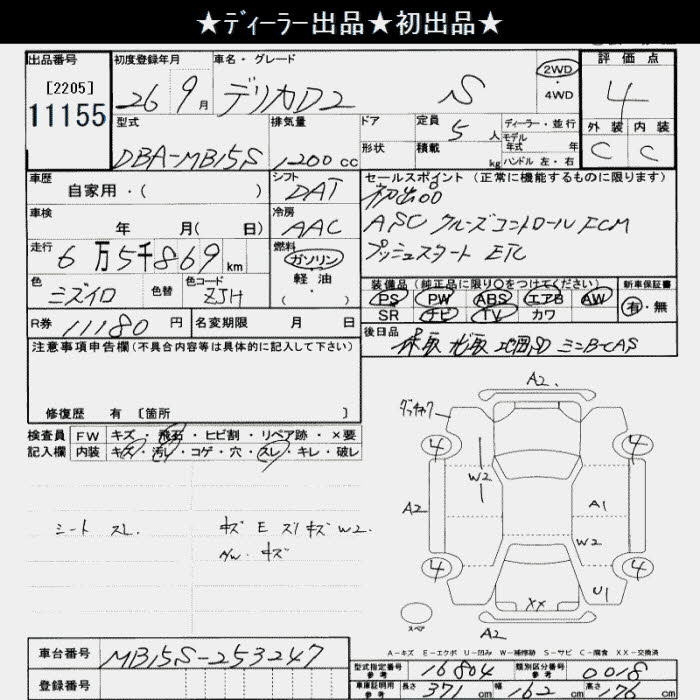 ★ディーラー出品★初出品★
出品番号 初度登録年月 車名・グレード 評価点
[2205] 26 9月 デリカD2 S 2WD・4WD 4
11155
型式 排気量 ドア 定員 5人 ディーラー・並行 外装 内装
DBA-MB15S 1200cc 形状 積載 kg モデル年式 年 C C
ハンドル 左・右
車歴 自家用・( ) シフト DAT セールスポイント (正常に機能するものに限ります)
初出品
車検 年 月( 日) 冷房 AAC ASC クルーズコントロール FCM
走行 6万5千869km 燃料 ガソリン・軽油・( ) プッシュスタート ETC
色 ミズイロ 色替 色コード ZJH 装備品 (純正品に限り○をつけてください) 新車保証書
PS PW ABS エアB AW 有・無
SR ナビ TV カワ
R券 11180円 名変期限 月 日 後日品
保取 ナビ取 地図SD ミニB-CAS
注意事項申告欄(不具合内容等は具体的に記入して下さい)
修復歴 有 [箇所 ]
検査員 FW キズ・飛石・ヒビ割・リペア跡・×要
記入欄 内装 キズ・汚レ・コゲ・穴・スレ・キレ・破レ
シート スレ キズ E スリキズ W2.
AW キズ
A2
4 4
W2
A2 A1 A2
W2
4 4
U1
XX
スペア
A2
A-キズ E-エクボ U-凹み W-補修跡 S-サビ C-腐食 XX-交換済
車台番号 MB15S-253247
型式指定番号参考 16804 類別区分番号参考 0018
登録番号
車庫証明用参考 長さ 371cm 幅 162cm 高さ 176cm